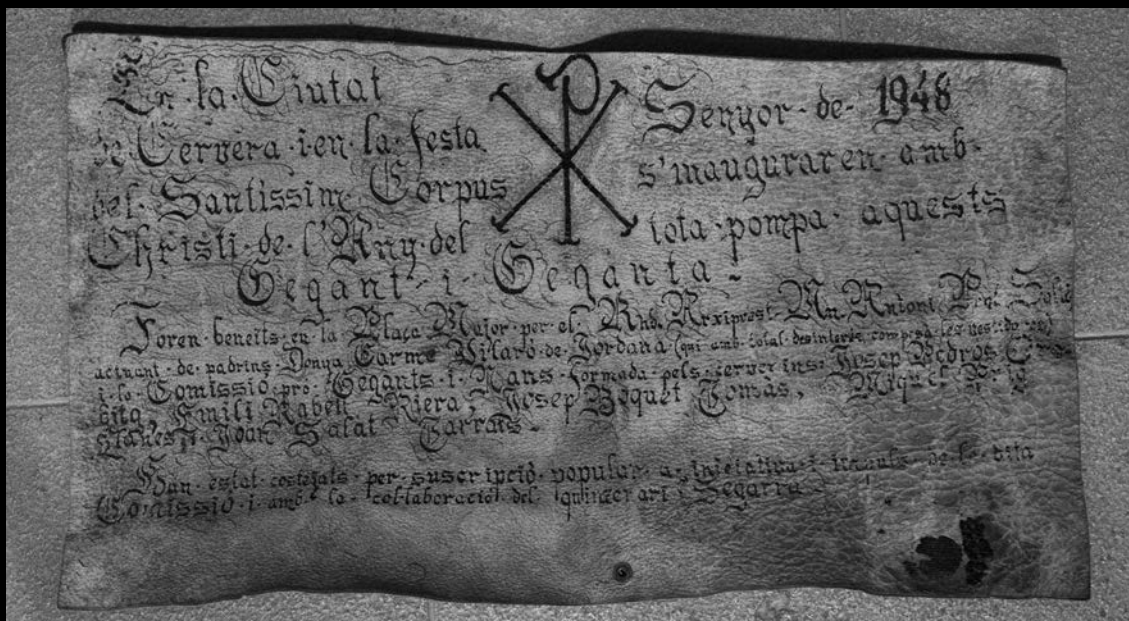 En · la · Ciutat
de Cervera · i en · la · festa
del · Santissim Corpus
Christi · de · l'Any · del
Senyor · de · 1948
s'inauguraren · amb ·
tota · pompa · aquests
Gegant · i · Geganta ·
Foren · beneits · en · la · Plaça · Major · per · el · Rnd. Arxiprest · Mn. Antoni
actuant · de · padrins · Donya Carme Vilaró · de · Jordana (qui amb · total · desinterès · composà les
i · la · Comissió · pro · Gegants · i · Nans · formada · pels · cerverins · Josep Pedrós
Emili Rabell Riera, Josep Boquet Tomàs, Miquel
Joan Salat Tarrats ·
Han · estat · costejats · per · suscripció · popular · a · iniciativa · i · de · la · dita
Comissió · i · amb · la · col·laboració · del · quinzenari Segarra